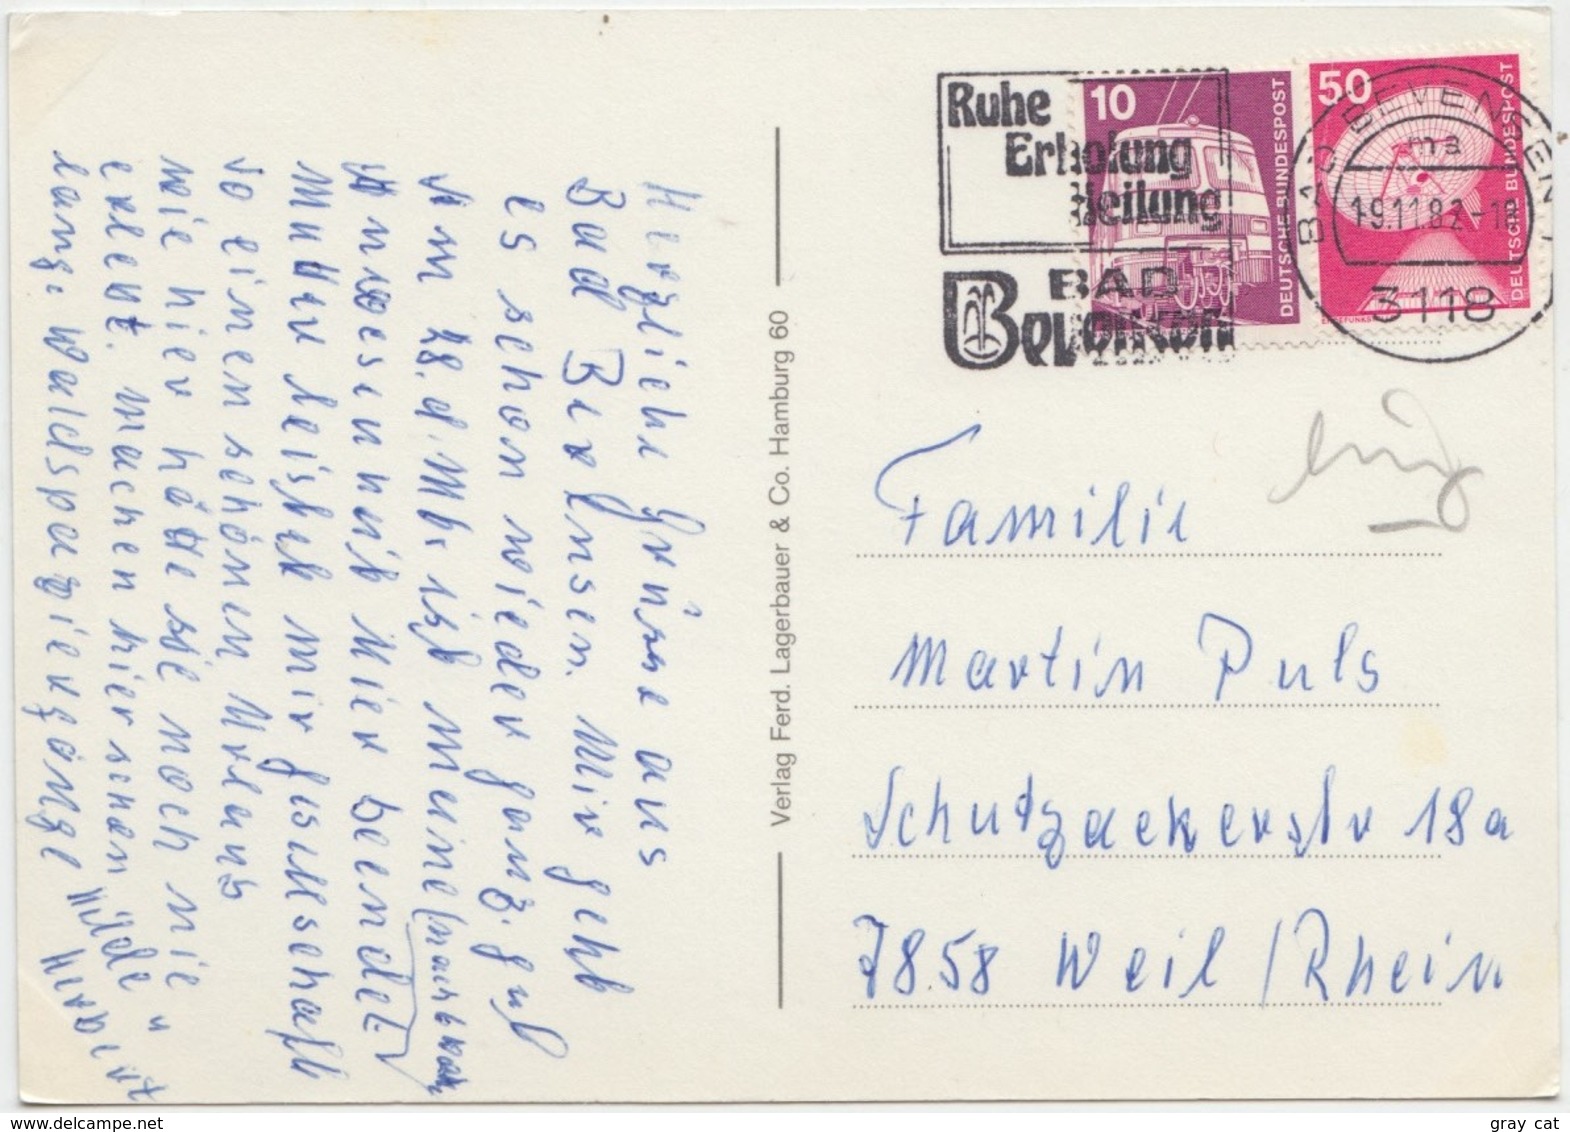 Herzliche Grüsse aus
Bad Bevensen. Mir geht
es schon wieder ganz gut
Am 28. d. Mts. ist meine
Anwesenheit hier beendet.
Mutter leistet mir gesellschaft
so einen schönen Urlaub
wie hier hätte sie noch nie
erlebt. machen hier schon
lange Waldspaziergänge
Hilde u
Verlag Ferd. Lagerbauer & Co. Hamburg 60
Ruhe
Erholung
Heilung
BAD
Bevensen
10
DEUTSCHE BUNDESPOST
50
DEUTSCHE BUNDESPOST
BAD BEVENSEN 1
ma
19.11.82-18
3118
Familie
Martin Puls
Schutzackerstr 18a
7858 Weil / Rhein
gray cat